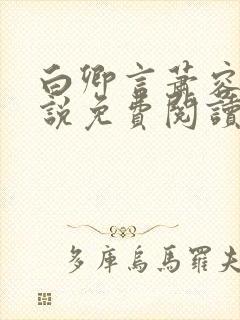 白卿言蕭容
說免費閱讀
多庫烏馬羅夫